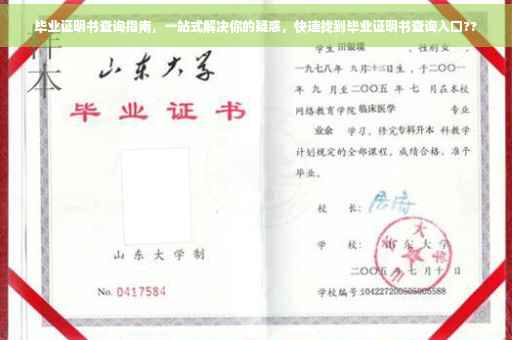 毕业证明书查询指南，一站式解决你的疑惑，快速找到毕业证明书查询入口??
样本
山东大学
毕业证书
山东大学制
No. 0417584
学生 田银瑞 ，性别女，
一九七八年 九月十三日生，于二〇〇一
年 九 月至二〇〇五 年 七 月在本校
网络教育学院 临床医学 专业
业余 学习，修完专科升本科教学
计划规定的全部课程，成绩合格，准予
毕业。
校 长：
学 校：山东大学
二〇〇五年 七 月十 日
学校编号:104227200505005588